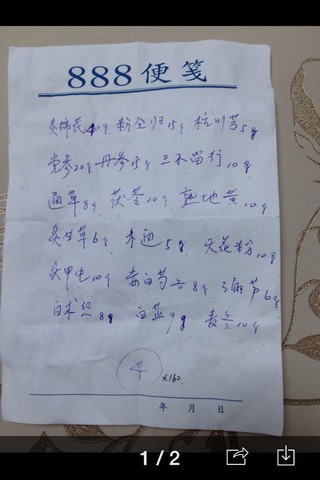 888便笺
炙绵芪40g 粉全归15g 杭川芎5g
党参20g 丹参15g 王不留行10g
通草8g 茯苓10g 熟地黄10g
炙甘草6g 木通5g 天花粉10g
炙甲虫10g 赤白芍各8g 漏芦6g
白术炭8g 白芷9g 麦冬10g
4 x160
年 月 日
1 / 2